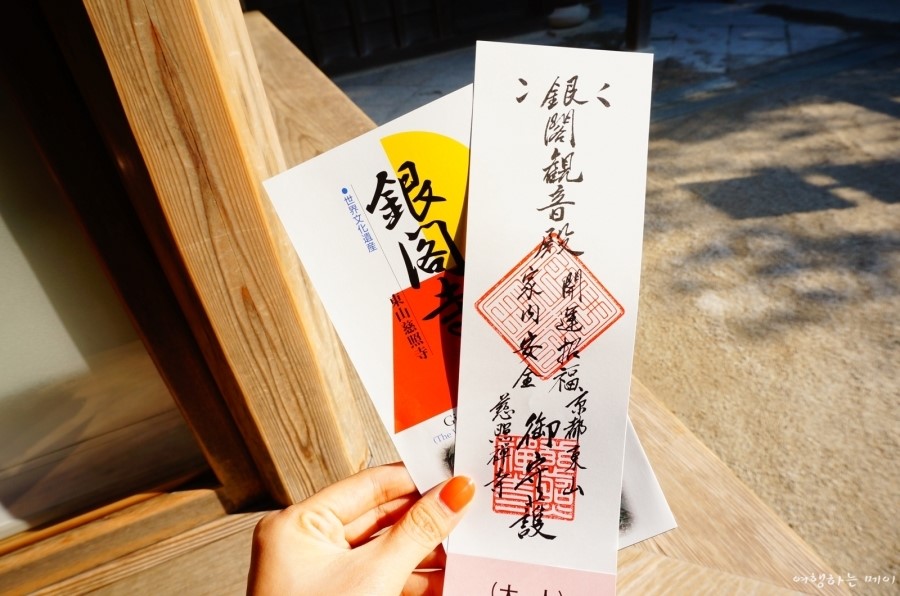 銀閣観音殿
開運招福
家内安全
京都東山
慈照禅寺
御守護
銀閣寺
●世界文化遺産
東山慈照寺
(The
여행하는 메이